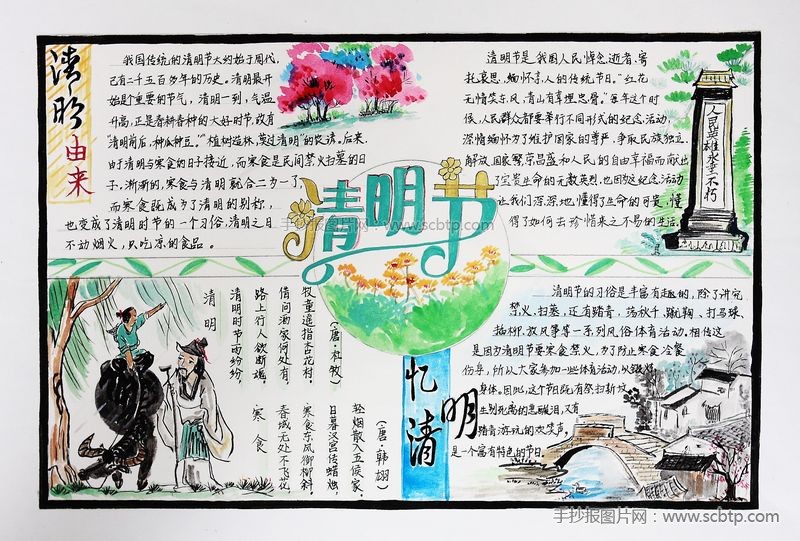 清明
由来
我国传统的清明节大约始于周代,
已有二千五百多年的历史。清明最开
始是个重要的节气，清明一到，气温
升高,正是春耕春种的大好时节,故有
“清明前后，种瓜种豆。”“植树造林，莫过清明”的农谚。后来,
由于清明与寒食的日子接近，而寒食是民间禁火扫墓的日
子，渐渐的，寒食与清明就合二为一了,
而寒食既成为了清明的别称，
也变成了清明时节的一个习俗,清明之日
不动烟火，只吃凉的食品。
清明节是我国人民悼念逝者、寄
托哀思、缅怀亲人的传统节日。“红花
无情笑东风，青山有幸埋忠骨。”每年这个时
候，人民群众都要举行不同形式的纪念活动，
深情缅怀为了维护国家的尊严，争取民族独立、
解放，国家繁荣昌盛和人民的自由幸福而献出
了宝贵生命的无数英烈，也因为这纪念活动
让我们深深地懂得了生命的可贵，懂
得了如何去珍惜来之不易的生活。
人民英雄永垂不朽
清明节
手抄报图片网：www.scbtp.com
清明
清明时节雨纷纷，
路上行人欲断魂。
借问酒家何处有，
牧童遥指杏花村。
(唐·杜牧)
寒食
春城无处不飞花，
寒食东风御柳斜。
日暮汉宫传蜡烛，
轻烟散入五侯家。
(唐·韩翃)
忆清明
清明节的习俗是丰富有趣的，除了讲究
禁火、扫墓，还有踏青、荡秋千、蹴鞠、打马球、
插柳、放风筝等一系列风俗体育活动。相传这
是因为清明节要寒食禁火，为了防止寒食冷餐
伤身，所以大家参加一些体育活动，以锻炼
身体。因此，这个节日既有祭扫新坟
生别死离的悲酸泪，又有
踏青游玩的欢笑声，
是一个富有特色的节日。
手抄报图片网：www.scbtp.com